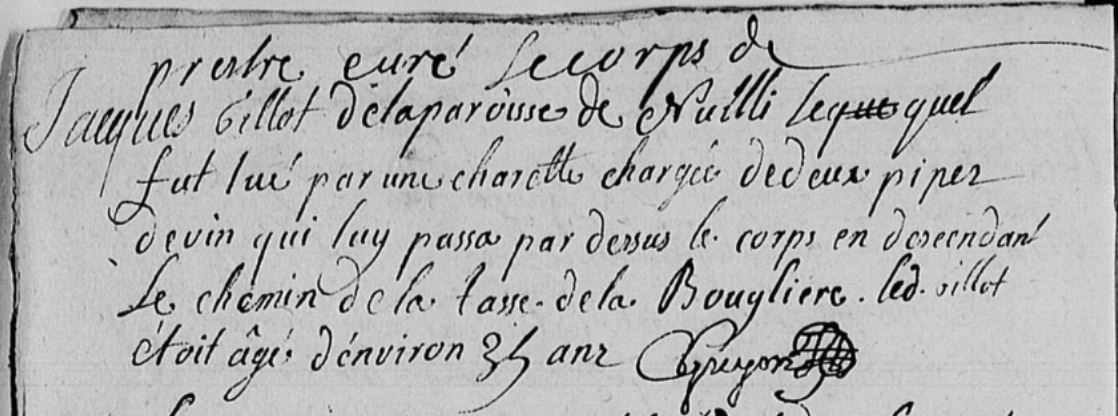 prestre curé le corps de
Jacques Gillot de la paroisse de Nuilli leque quel
fut tué par une charette chargée de deux pipes
de vin qui luy passa par dessus le corps en descendant
Le chemin de la tasse de la Bougliere. led. Gillot
étoit âgé d'environ 35 ans